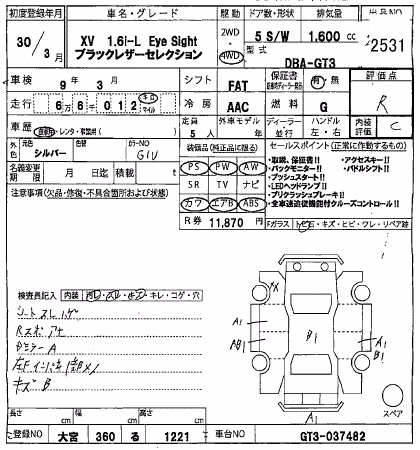 初度登録年月 車名・グレード 駆動 ドア数・形状 排気量 出品NO
30年 3月 XV 1.6i-L Eye Sight ブラックレザーセレクション 2WD・4WD 5 S/W 1,600 cc 2531
型式 DBA-GT3
車検 9年 3月 シフト FAT 保証書 有・無 評価点 R
走行 66012 キロ マイル 冷房 AAC 燃料 G
車歴 自家用・レンタ・事業用( ) 定員 5人 外車モデル 年 ディーラー・並行 ハンドル 左・右 内装評価 C
外色 元色 シルバー 色替 カラーNO G1U 装備品(純正品に限る) セールスポイント(正常に動作するもの)
名義変更期限 月 日迄 積載 t
PS PW AW
SR TV ナビ
カワ エアB ABS
R券 11,870円
・取説、保証書!! ・アクセスキー!!
・バックモニター!! ・パドルシフト!!
・プッシュスタート!!
・LEDヘッドランプ!!
・プリクラッシュブレーキ!!
・全車速追従機能付クルーズコントロール!!
注意事項(欠品・修復・不具合箇所および状態)
Fガラス
検査員記入 内装 キレ・コゲ・穴
シートスレ
A
キズ B
A1
B1
A1
B1
A1
スペア
長さ cm 幅 cm 高さ cm
登録NO 大宮 360 る 1221 車台NO GT3-037482